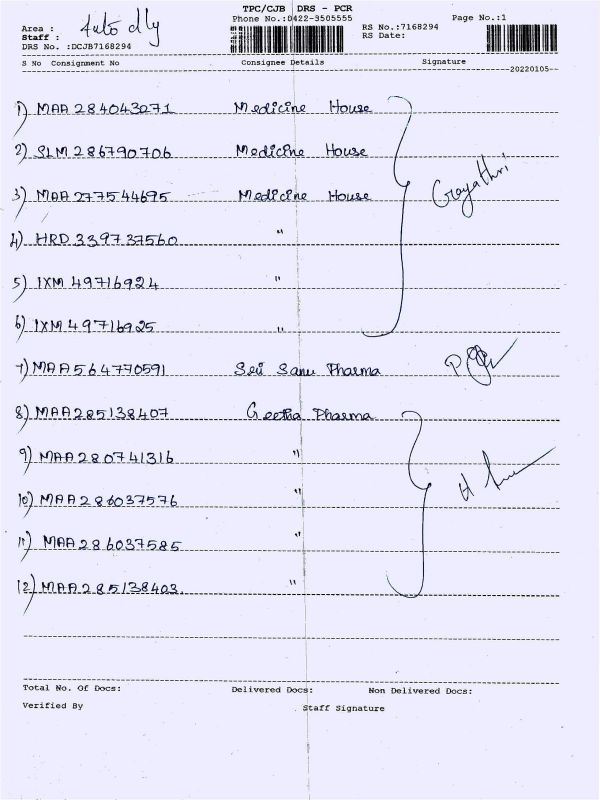 TPC/CJB DRS - PCR
Area : Auto dly Phone No.:0422-3505555 Page No.:1
Staff : RS No.:7168294
DRS No. :DCJB7168294 RS Date:
S No Consignment No Consignee Details Signature
20220105
1) MAA 284043271 Medicine House
2) SLM 286790706 Medicine House
3) MAA 277544695 Medicine House Gayathri
4) HRD 339737560 "
5) IXM 49716924 "
6) IXM 49716925 "
7) MAA 564770591 Sri Sanu Pharma
8) MAA 285138407 Geetha Pharma
9) MAA 280741316 "
10) MAA 286037576 "
11) MAA 286037585 "
12) MAA 285138403. "
Total No. Of Docs: Delivered Docs: Non Delivered Docs:
Verified By Staff Signature